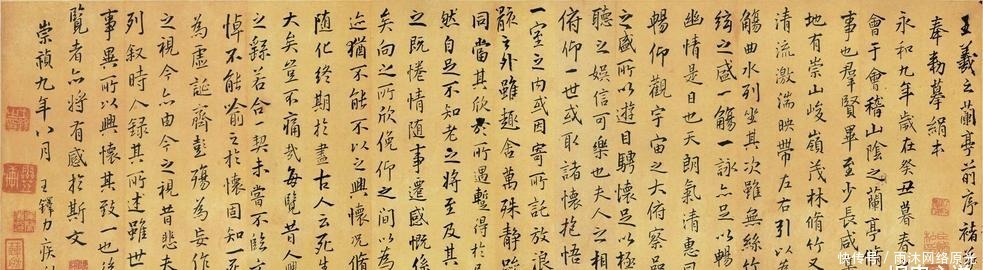 王羲之蘭亭前序褚
奉勅摹絹本
永和九年歲在癸丑暮春
會于會稽山陰之蘭亭
事也羣賢畢至少長咸
地有崇山峻嶺茂林脩竹又
清流激湍映帶左右引以
觴曲水列坐其次雖無絲竹
絃之盛一觴一詠亦足以暢
幽情是日也天朗氣清惠
暢仰觀宇宙之大俯察品
之盛所以遊目騁懷足以極
聽之娛信可樂也夫人之相
俯仰一世或取諸懷抱悟
一室之內或因寄所託放浪
骸之外雖趣舍萬殊靜
同當其欣於所遇暫得於
然自足不知老之將至及其
之既惓情隨事遷感慨係
矣向之所欣俛仰之間以為
迹猶不能不以之興懷況脩
随化終期於盡古人云死生
大矣豈不痛哉每覽昔人興
之緣若合一契未嘗不臨文
悼不能喻之於懷固知
為虛誕齊彭殤為妄作
之視今亦由今之視昔悲夫
列叙時人録其所述雖世
事異所以興懷其致一也後
覽者亦將有感於斯文
崇禎九年八月 王鐸力疾
快传号/雨沐网络原光